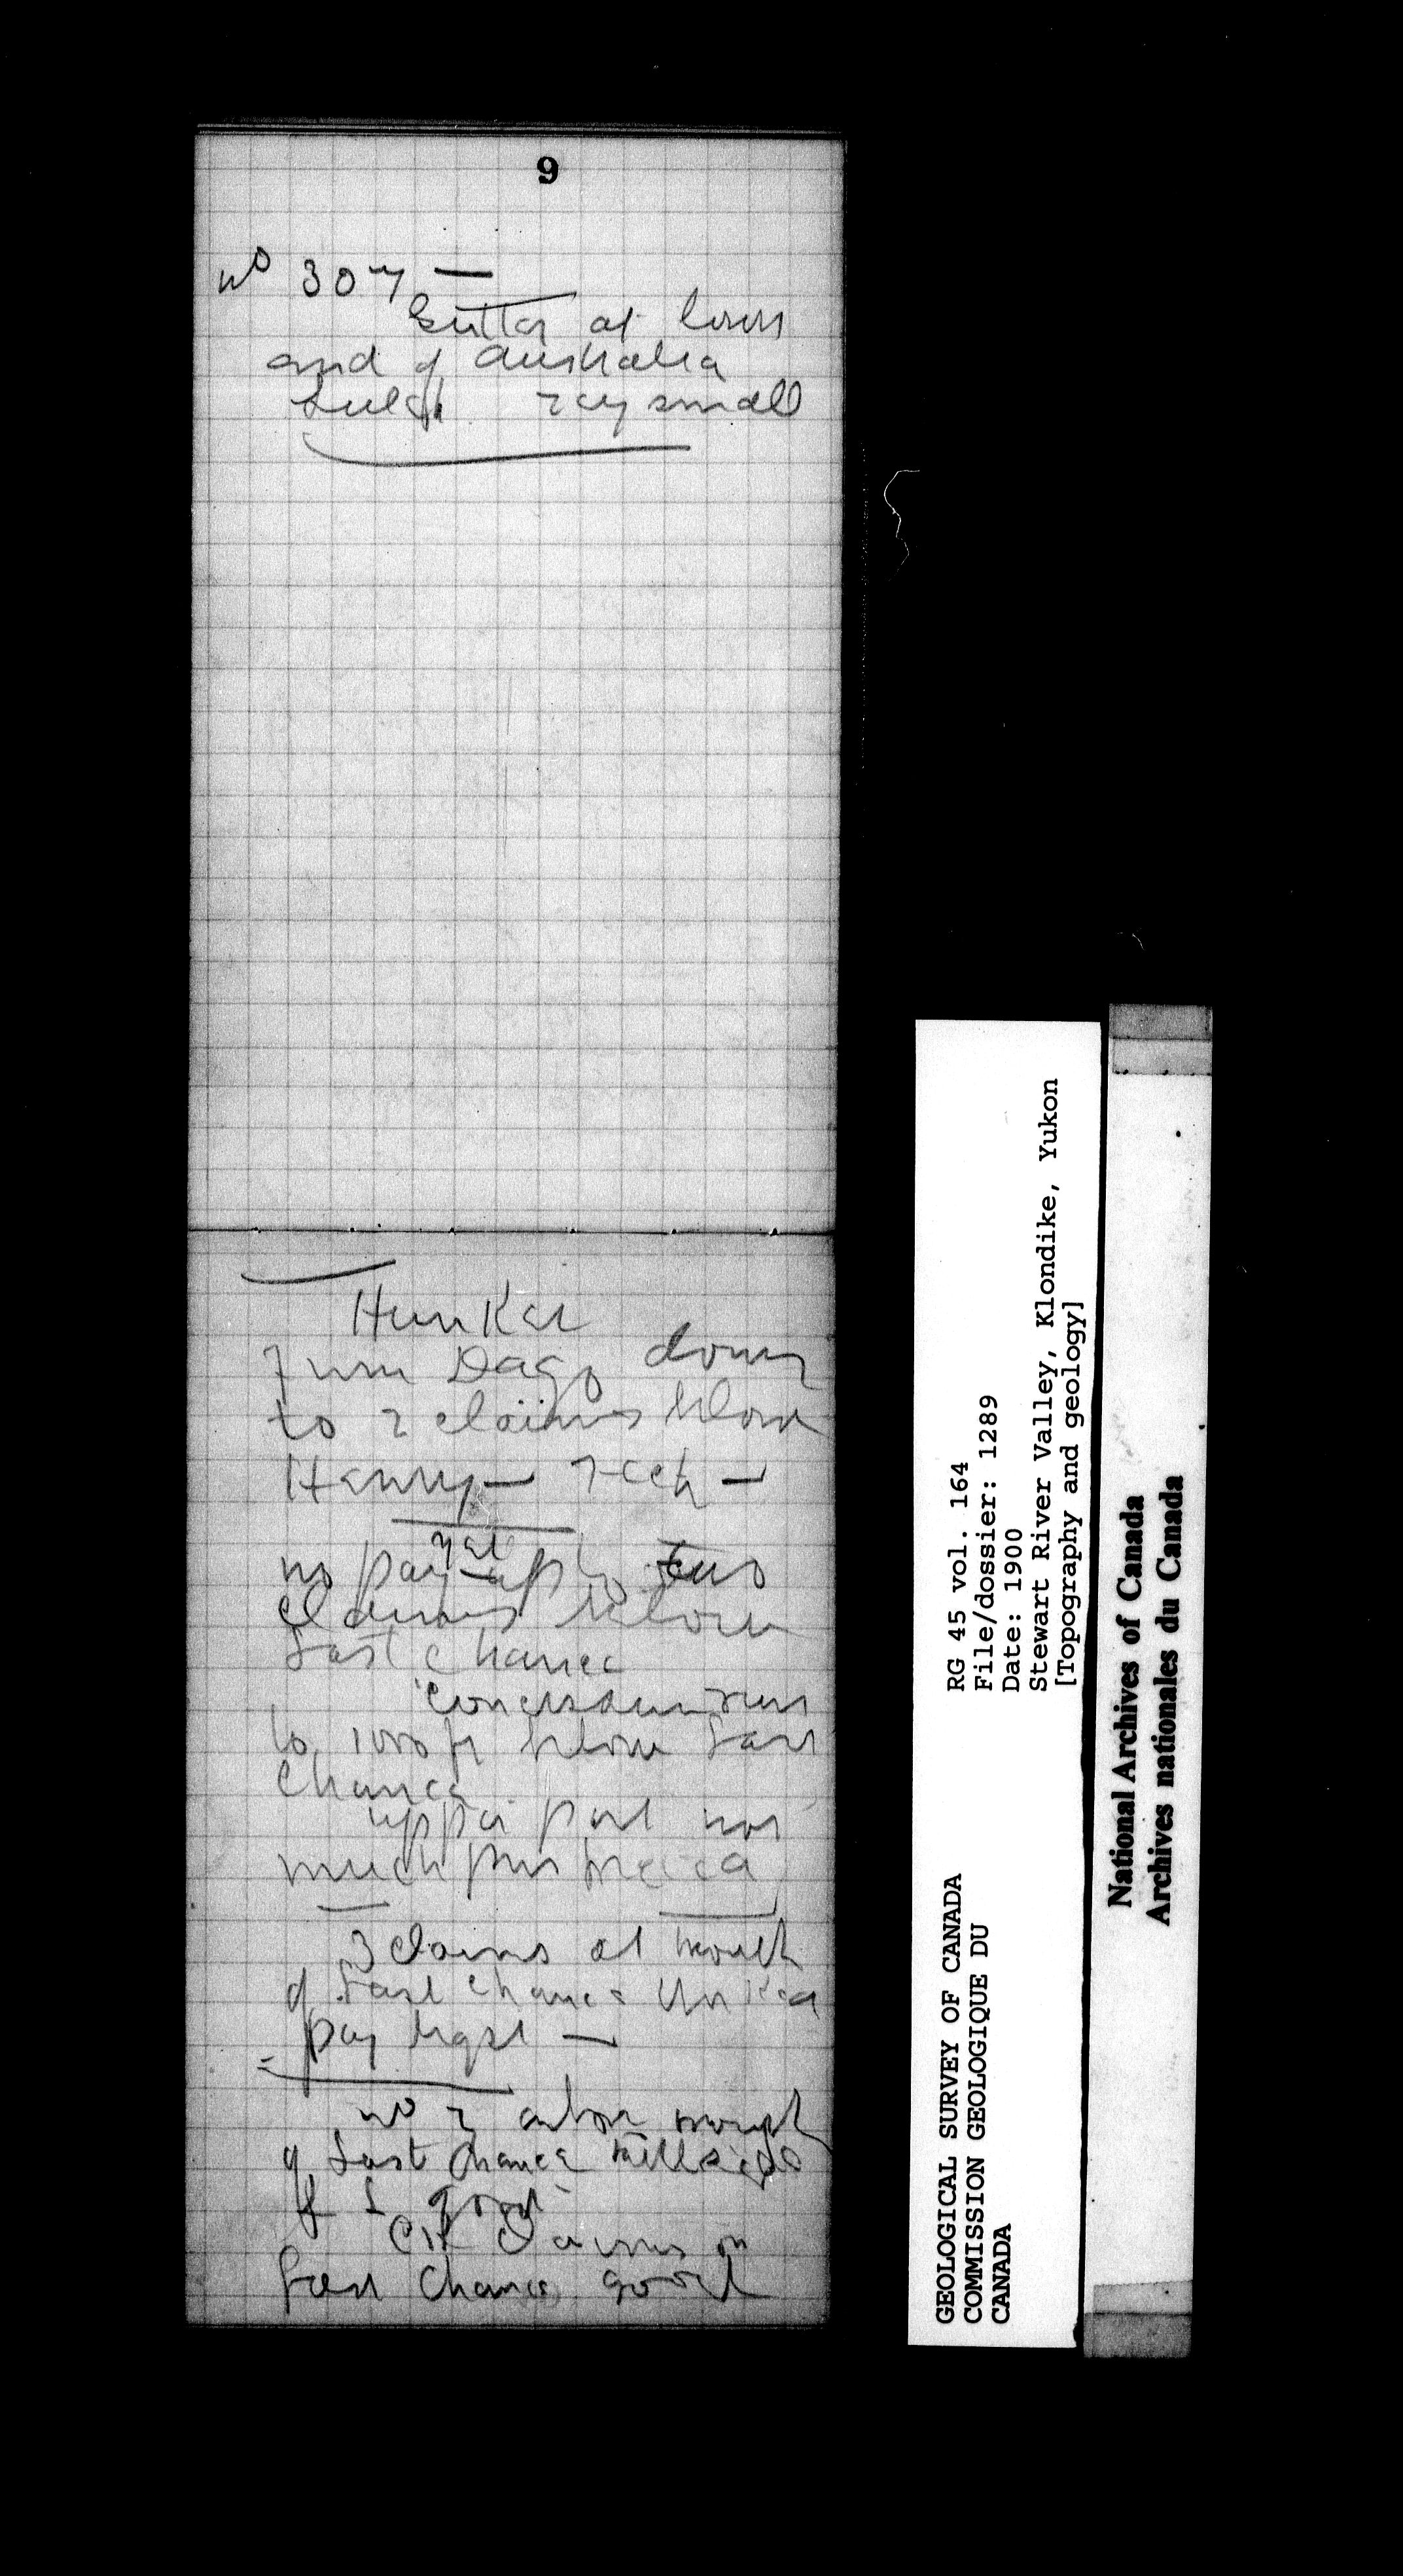 9
No 307 —
Gutter at lower
end of Australia
Gulch very small
Hunker
From Dago down
to 2 claims below
Henry — rich —
no pay yet up to two
claims below
Last Chance
Concession runs
to 1000 ft below Last
Chance
upper part not
much prospected
3 claims at mouth
of Last Chance United
pay
No 2 above mouth
of Last Chance hillside
good
Ck Claims on
Last Chance good
RG 45 vol. 164
File/dossier: 1289
Date: 1900
Stewart River Valley, Klondike, Yukon
[Topography and geology]
GEOLOGICAL SURVEY OF CANADA
COMMISSION GEOLOGIQUE DU
CANADA
National Archives of Canada
Archives nationales du Canada